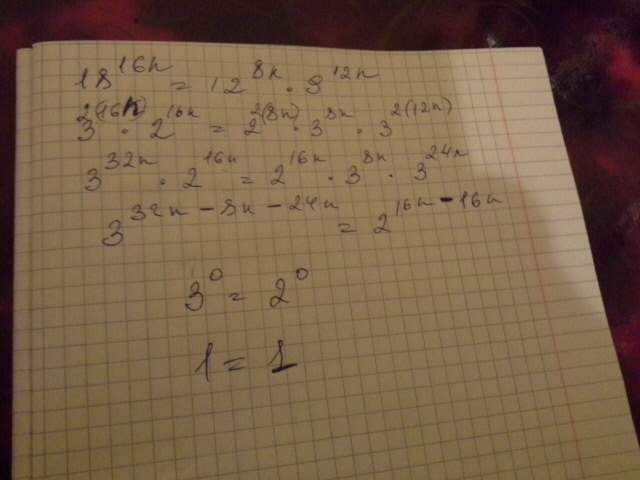 18^{16n} = 12^{8n} · 9^{12n}
3^{2(16n)} · 2^{16n} = 2^{2(8n)} · 3^{8n} · 3^{2(12n)}
3^{32n} · 2^{16n} = 2^{16n} · 3^{8n} · 3^{24n}
3^{32n - 8n - 24n} = 2^{16n - 16n}
3^0 = 2^0
1 = 1